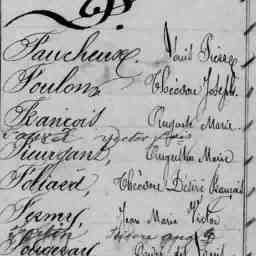 Faucheux. Louis Pierre
Foulon, Théodore Joseph
François Auguste Marie
victor
Fieurgant, Augustin Marie
Folliard, Théodore Désiré François
Fermy, Jean Marie Victor